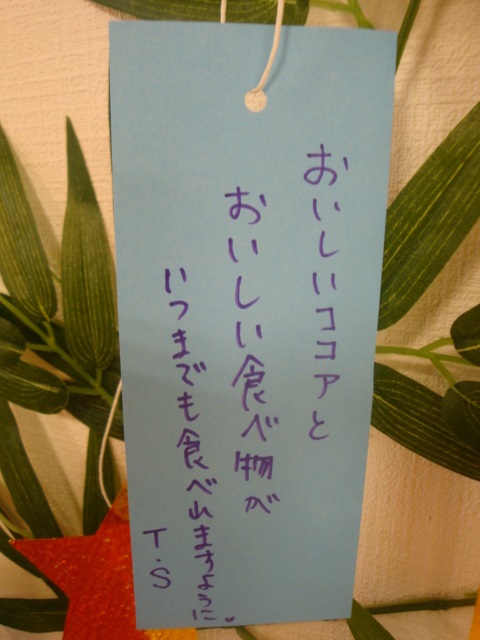 おいしいココアと
おいしい食べ物が
いつまでも食べれますように。
T.S